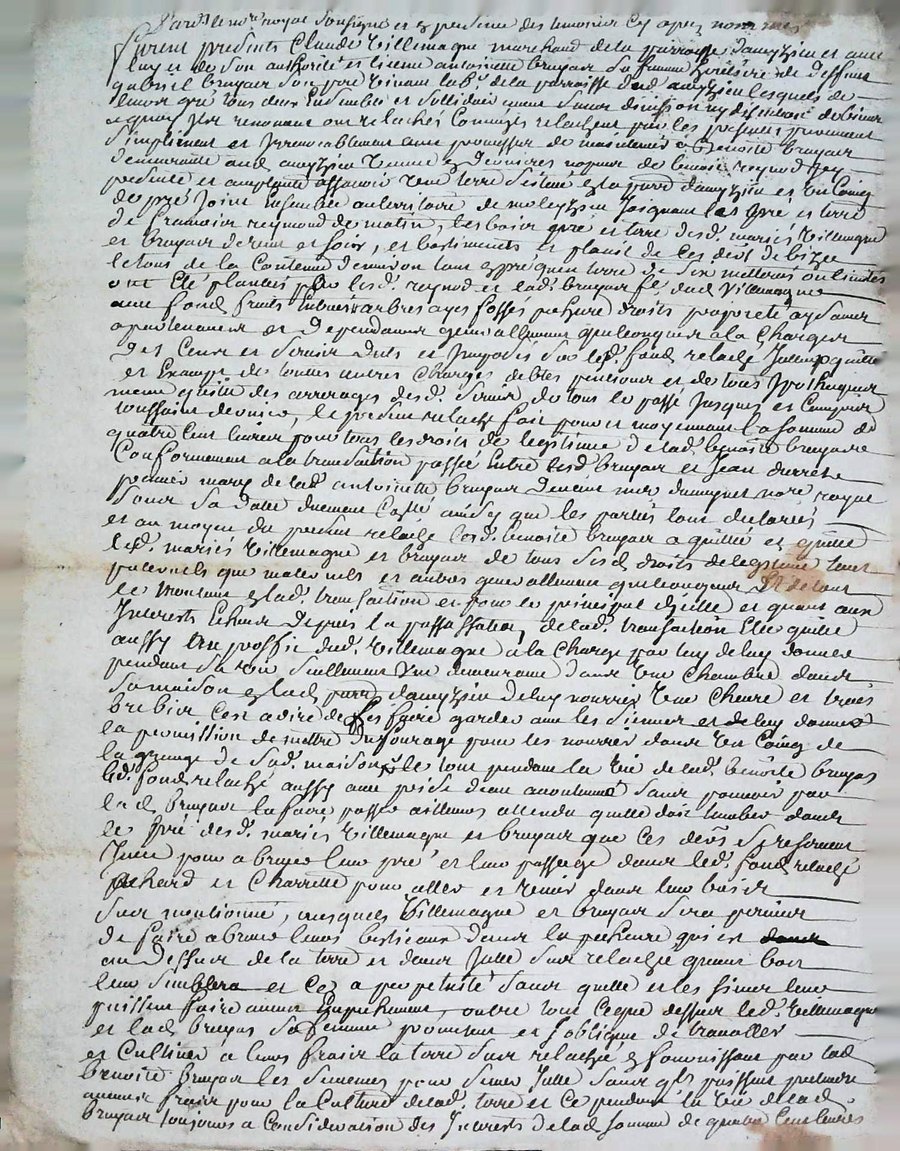 Pardt le nore royal soussigné et es presence des temoins cy apres nommés
furent presents Claude Villemagne marchand de la parroisse d'amyzieu et avec
luy et de son authorité et licence antoinette bruyas sa femme heritiere de deffunt
gabriel bruyas son pre vivant labr de la parroisse dud amyzieu lesquels de
leur gre tous deux Ensemble et sollidairement sans division ny discution de biens
a quoy ils renoncent ont relachés Comme ils relachent par les presentes purement
simplement et Irrevocablement avec promesse de maintenir a Benoite bruyas
demeurante aud amyzieu veuve es dernieres nopces de benoit reynod Icy
presente et acceptante assavoir Une terre située es lad parr d'amyzieu et un Coing
de pré Joint Ensemble au territoire de Joignant les pré et terre
de francois reymond de matin, les bois pré et terre desd. mariés Villemagne
et bruyas de vent et soir, et bastiments et plassit de ces d. de bize
le tous de la Contenue d'environ tant es pré qu'en terre de six ou limites
ont Eté plantées par lesd. reynod et lad. bruyas fe dud Villemagne
avec fond fruits Entrées arbres ayes fossés pecherie droits proprieté aysances
apartenances et Dependances generallement quelconques a la Charge
des Cens et servis duts et Imposés sur led. fond relaché Jcelluy quitte
et Exempt de touttes autres Charges debtes pentions et de tous Ipotheques
meme quitte des arrerages desd. servis de tous le passé Jusques et Compris
toussaint dernier, le present relache fait pour et moyennant la somme de
quatre Cent livres pour tous les droits de legitime de lad. benoite bruyas
Conformement a la transaction passée Entre lesd bruyas et Jean
premier mary de lad antoinette bruyas devant mre nore royal
sous sa date duement Collé ainsy que les parties l'ont declarées
et au moyen du present relache lad. benoite bruyas a quitté et quitte
lesd. mariés Villemagne et bruyas de tous sesd. droits de legitime tant
paternels que maternels et autres generallement quelconques Et de tout
le Montant es lad. transaction et pour le principal d'icelle et quant aux
Interests Echeus depuis la passassation, de lad. transaction Elle quitte
aussy au proffit dud. Villemagne a la Charge par luy de luy donner
pendant sa vie seullement Une demeurance dans Une Chambre dans
sa maison es lad parr d'amyzieu de luy nourrir Une Chevre et trois
brebis c'est a dire de les faire garder avec les siennes et de luy donner
la permission de mettre du fourage pour les nourrir dans Un Coing de
la grange de sad. maison le tout pendant la vie de lad. benoite bruyas
led. fond relaché aussy avec prise d'eau sans pouvoir par
lad. bruyas la faire passer ailleurs attendu qu'elle doit tomber dans
le pré desd. mariés Villemagne et bruyas que ces ders se reservent
Icelle pour abreuver leur pré et leur passage dans led. fond relaché
a Char et Charrette pour aller et venir dans leur bois
sus mentionné, auxquels Villemagne et bruyas sera permis
de faire abreuver leurs bestieaux dans la pecherie qui est
au dessus de la terre et dans Jcelle sus relachée quand bon
leur semblera et Ce a perpetuité sans quelle et les siens leur
puissent faire aucun Empechement, outre tout Ce que dessus led. Villemagne
et lad bruyas sa femme promettent et s'obligent de travailler
et Cultiver a leurs fraix la terre sus relachée es fournissant par lad
benoite bruyas les semences pour semer Jcelle sans qls puissent pretendre
aucuns fraix pour la Culture de lad. terre et Ce pendant la vie de lad.
bruyas toujours a Consideration des Interests de lad somme de quatre Cent livres